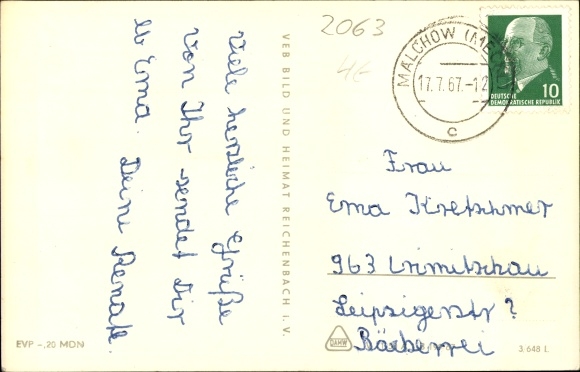 Viele herzliche Grüße
von Ihr sendet Dir
lb Ema. Deine Renate.
VEB BILD UND HEIMAT REICHENBACH I. V.
2063
MALCHOW (MECKL)
17.7.67.-12
c
10
DEUTSCHE
DEMOKRATISCHE REPUBLIK
Frau
Erna Kretschmer
963 Crimitschau
Leipzigerstr ?
Bäckerrei
EVP -,20 MDN
DAMW
3 648 L